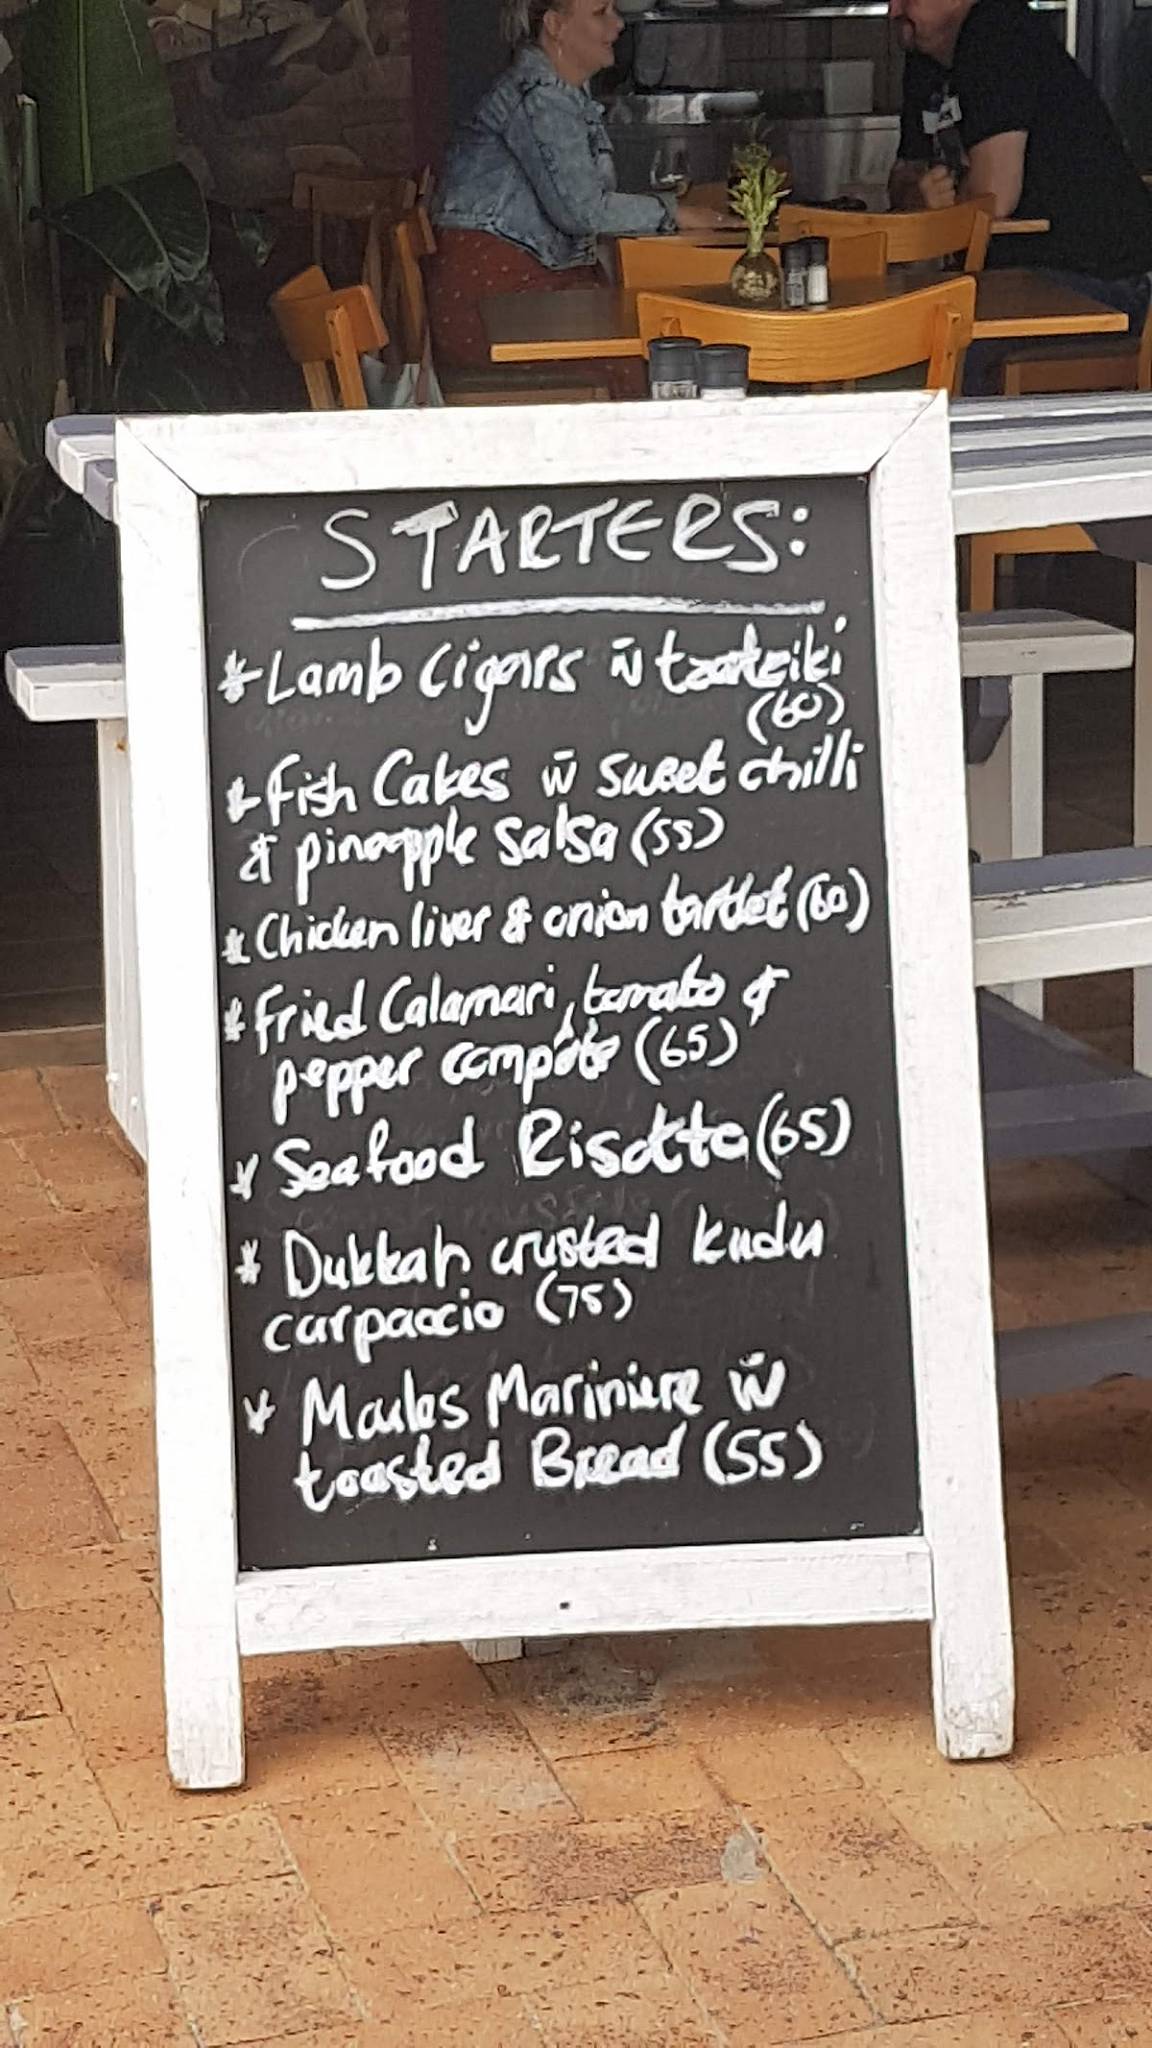 STARTERS:
* Lamb Cigars w̄ tzatziki
(60)
* Fish Cakes w̄ sweet chilli
& pineapple salsa (55)
* Chicken liver & onion tartlet (60)
* Fried Calamari, tomato &
pepper compôte (65)
* Seafood Risotto (65)
* Dukkah crusted kudu
carpaccio (75)
* Moules Mariniere w̄
toasted Bread (55)